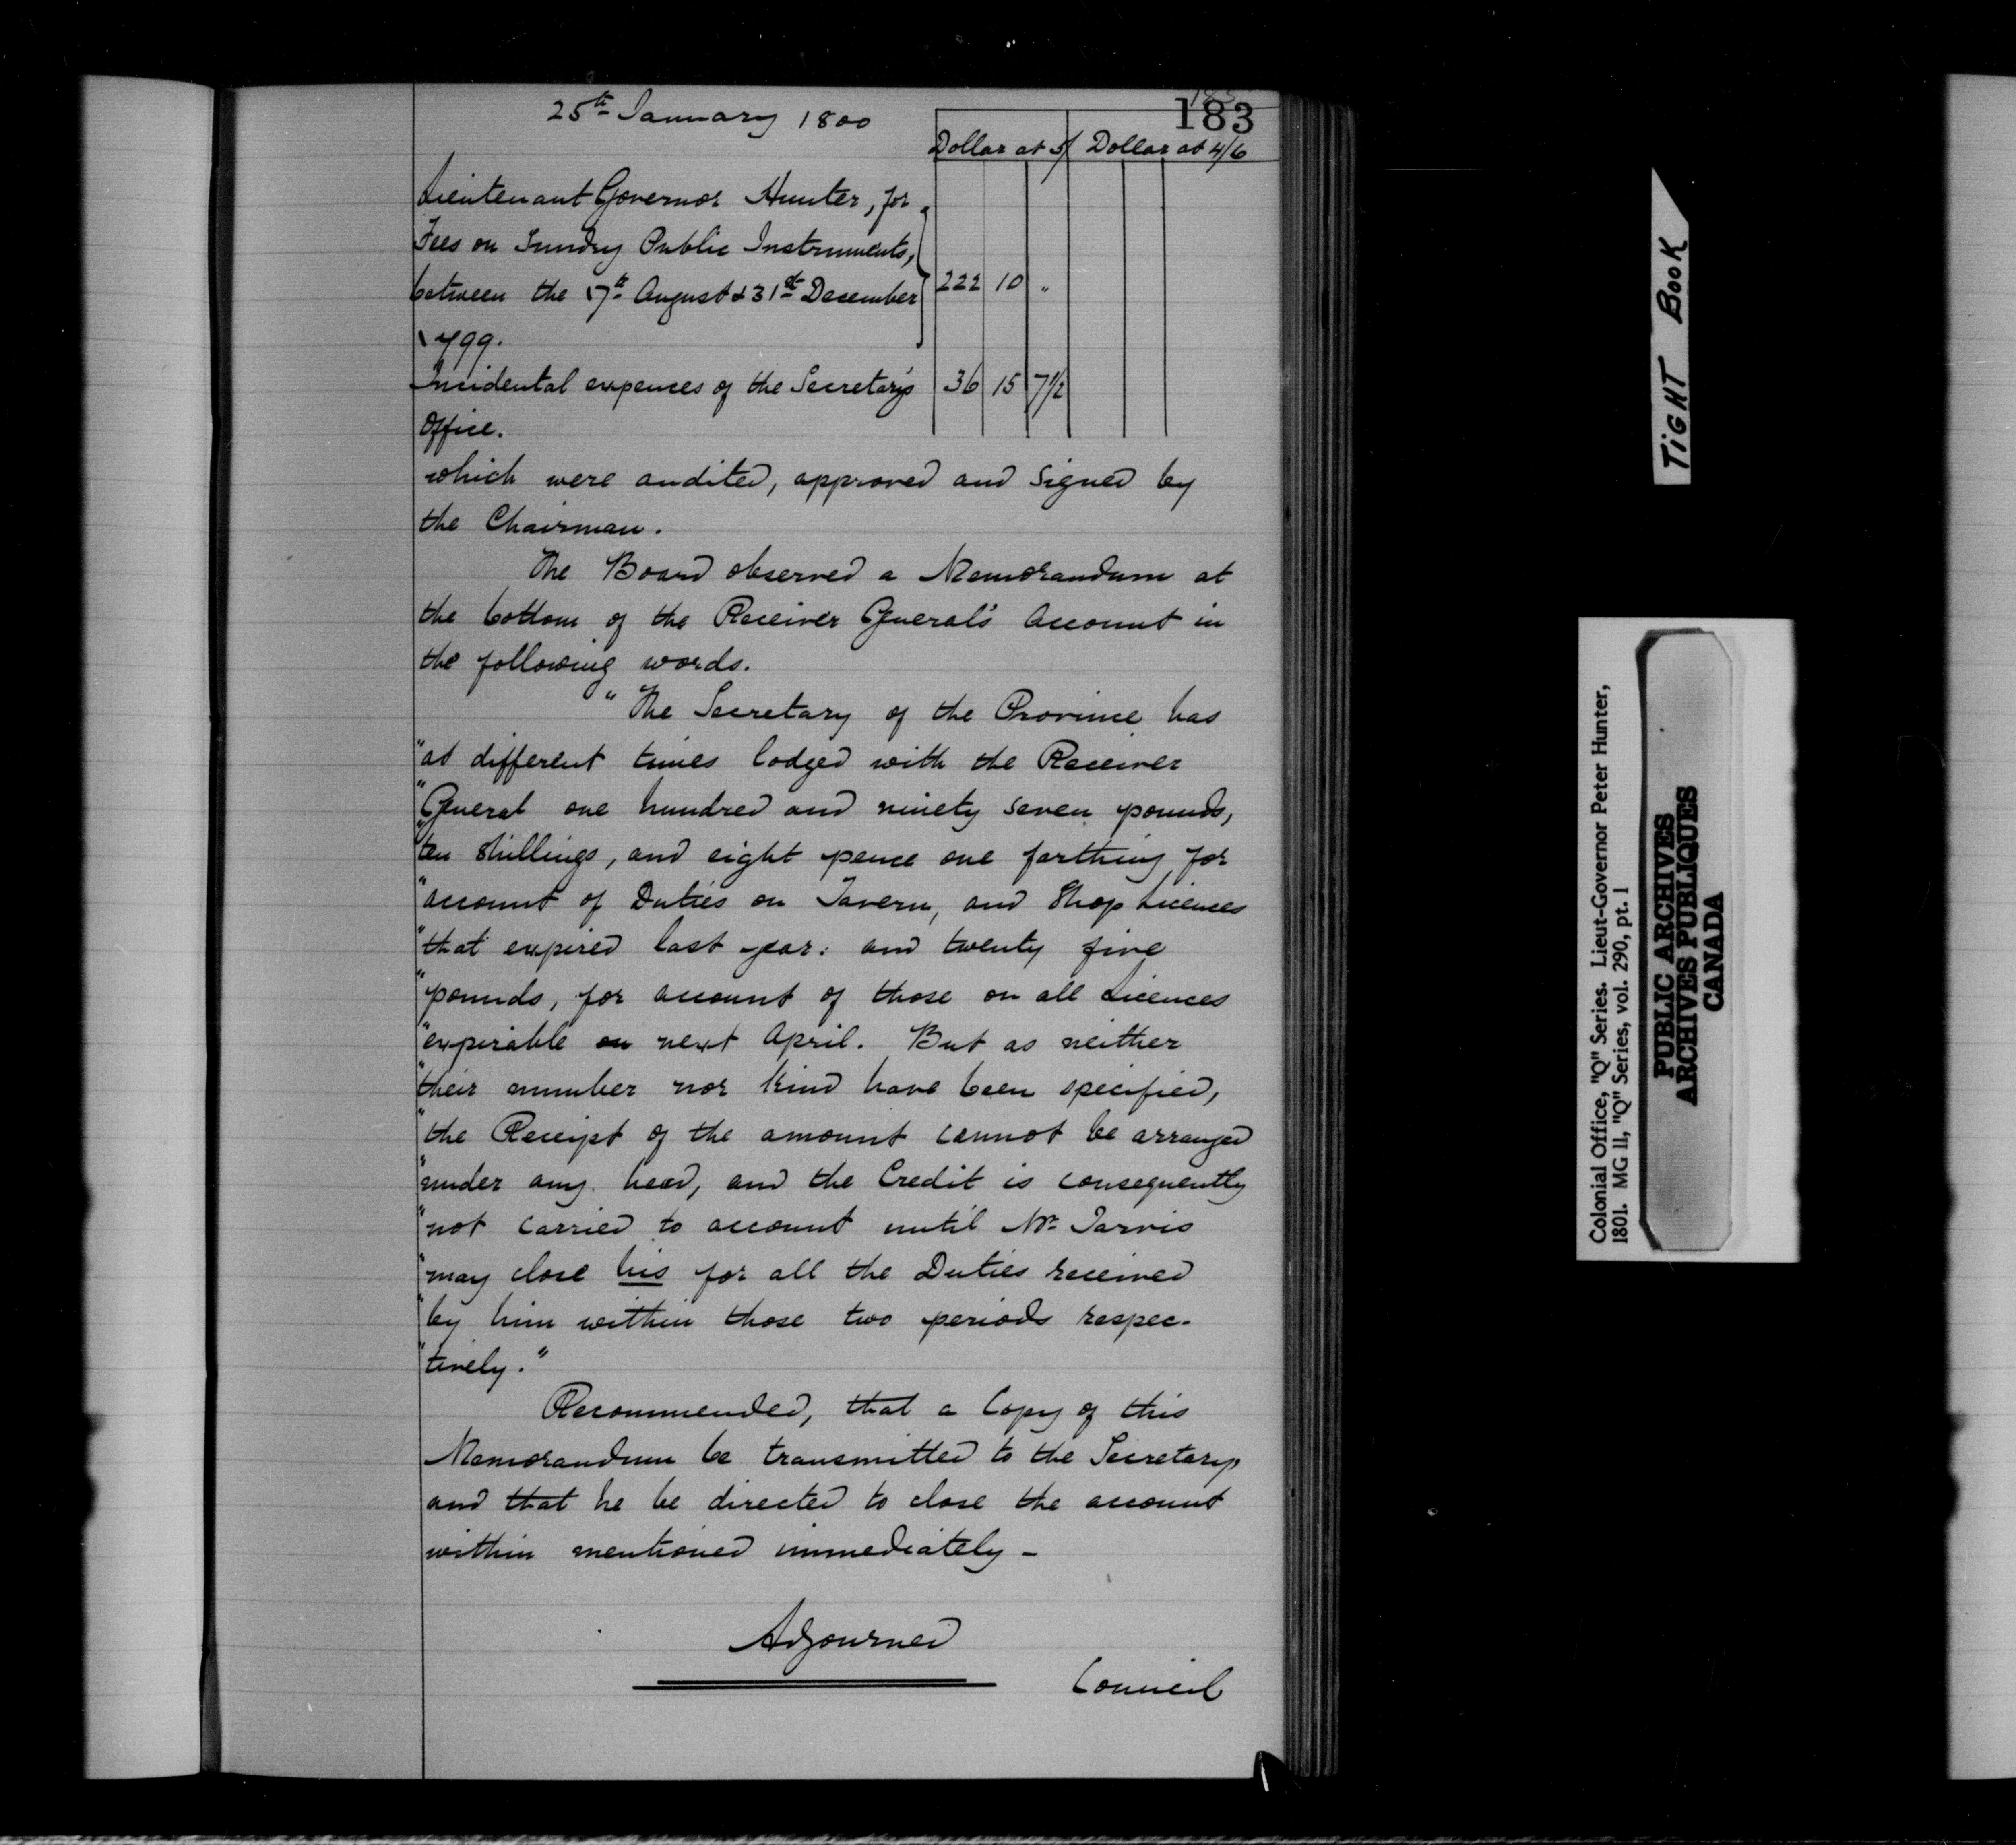 183
25th January 1800
Dollar at 5/ Dollar at 4/6
Lieutenant Governor Hunter, for
Fees on Sundry Public Instruments,
between the 17th August & 31st December 222 10 "
1799.
Incidental expences of the Secretary's 36 15 7½
Office.
which were audited, approved and signed by
the Chairman.
The Board observed a Memorandum at
the bottom of the Receiver General's Account in
the following words.
"The Secretary of the Province has
"at different times lodged with the Receiver
"General one hundred and ninety seven pounds,
"ten shillings, and eight pence one farthing, for
"account of Duties on Tavern, and Shop Licences
"that expired last year: and twenty five
"pounds, for account of those on all Licences
"expirable on next April. But as neither
"their number nor kind have been specified,
"the Receipt of the amount cannot be arranged
"under any head, and the Credit is consequently
"not carried to account until Mr. Jarvis
"may close his for all the Duties received
"by him within those two periods respec-
"tively."
Recommended, that a Copy of this
Memorandum be transmitted to the Secretary,
and that he be directed to close the account
within mentioned immediately -
Adjourned
Council
TIGHT BOOK
Colonial Office, "Q" Series. Lieut-Governor Peter Hunter,
1801. MG 11, "Q" Series, vol. 290, pt. 1
PUBLIC ARCHIVES
ARCHIVES PUBLIQUES
CANADA